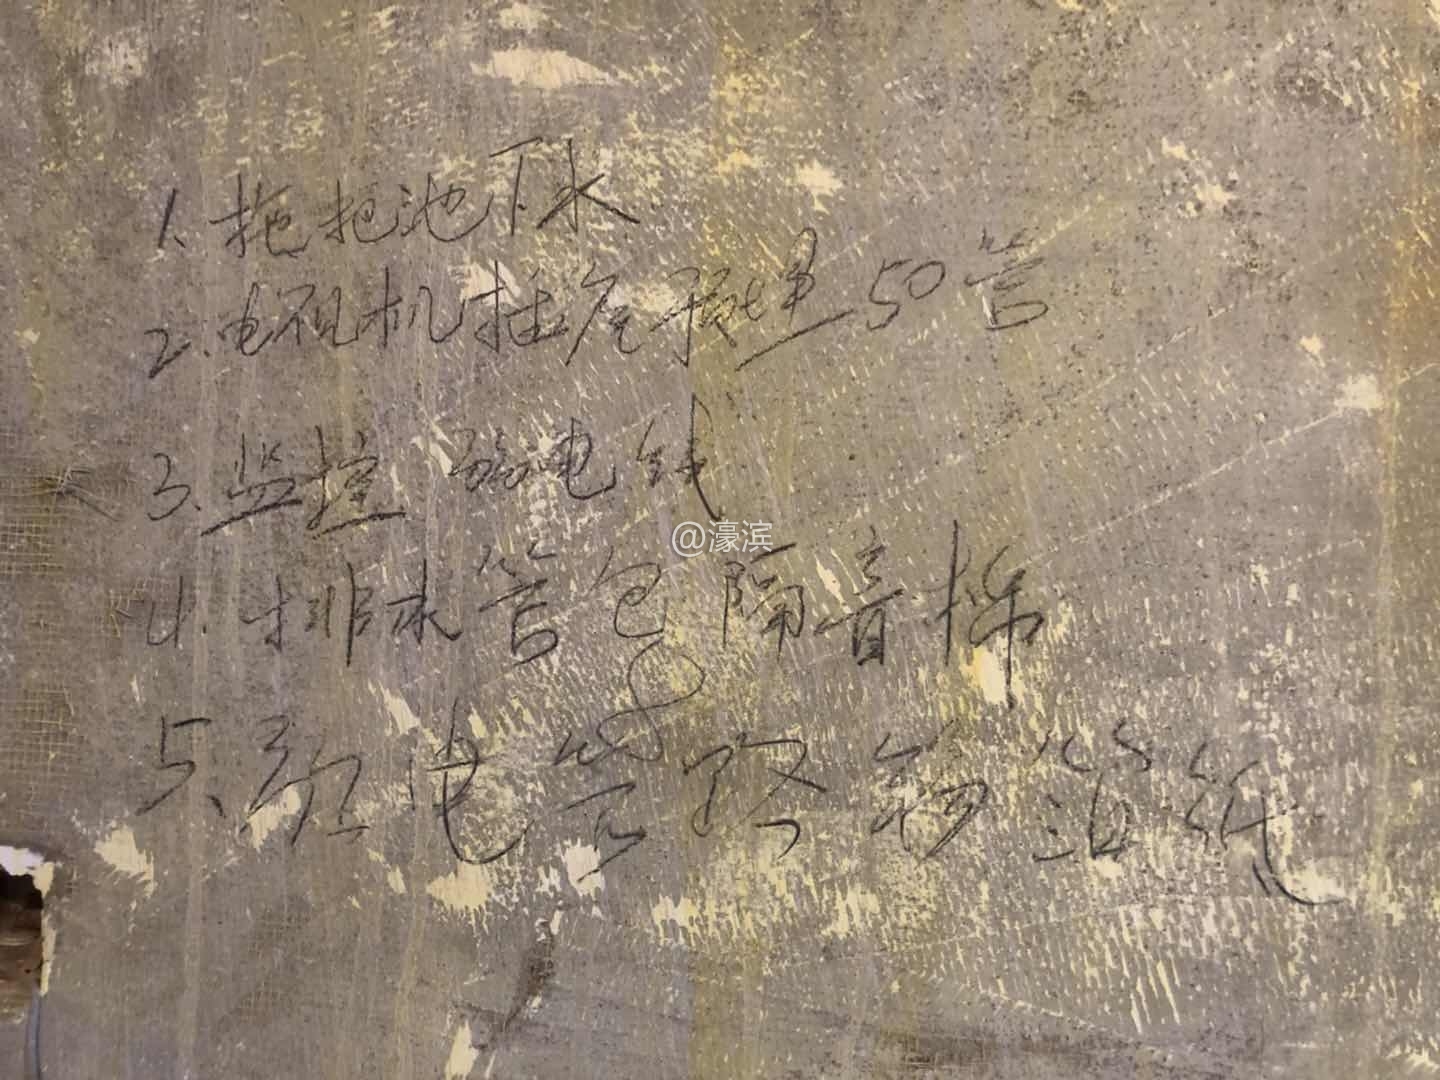 1、拖把池下水
2、电视机插座预埋50管
3、监控 弱电线
4、排水管包隔音棉
@濠滨
5、弱电管路锡箔纸